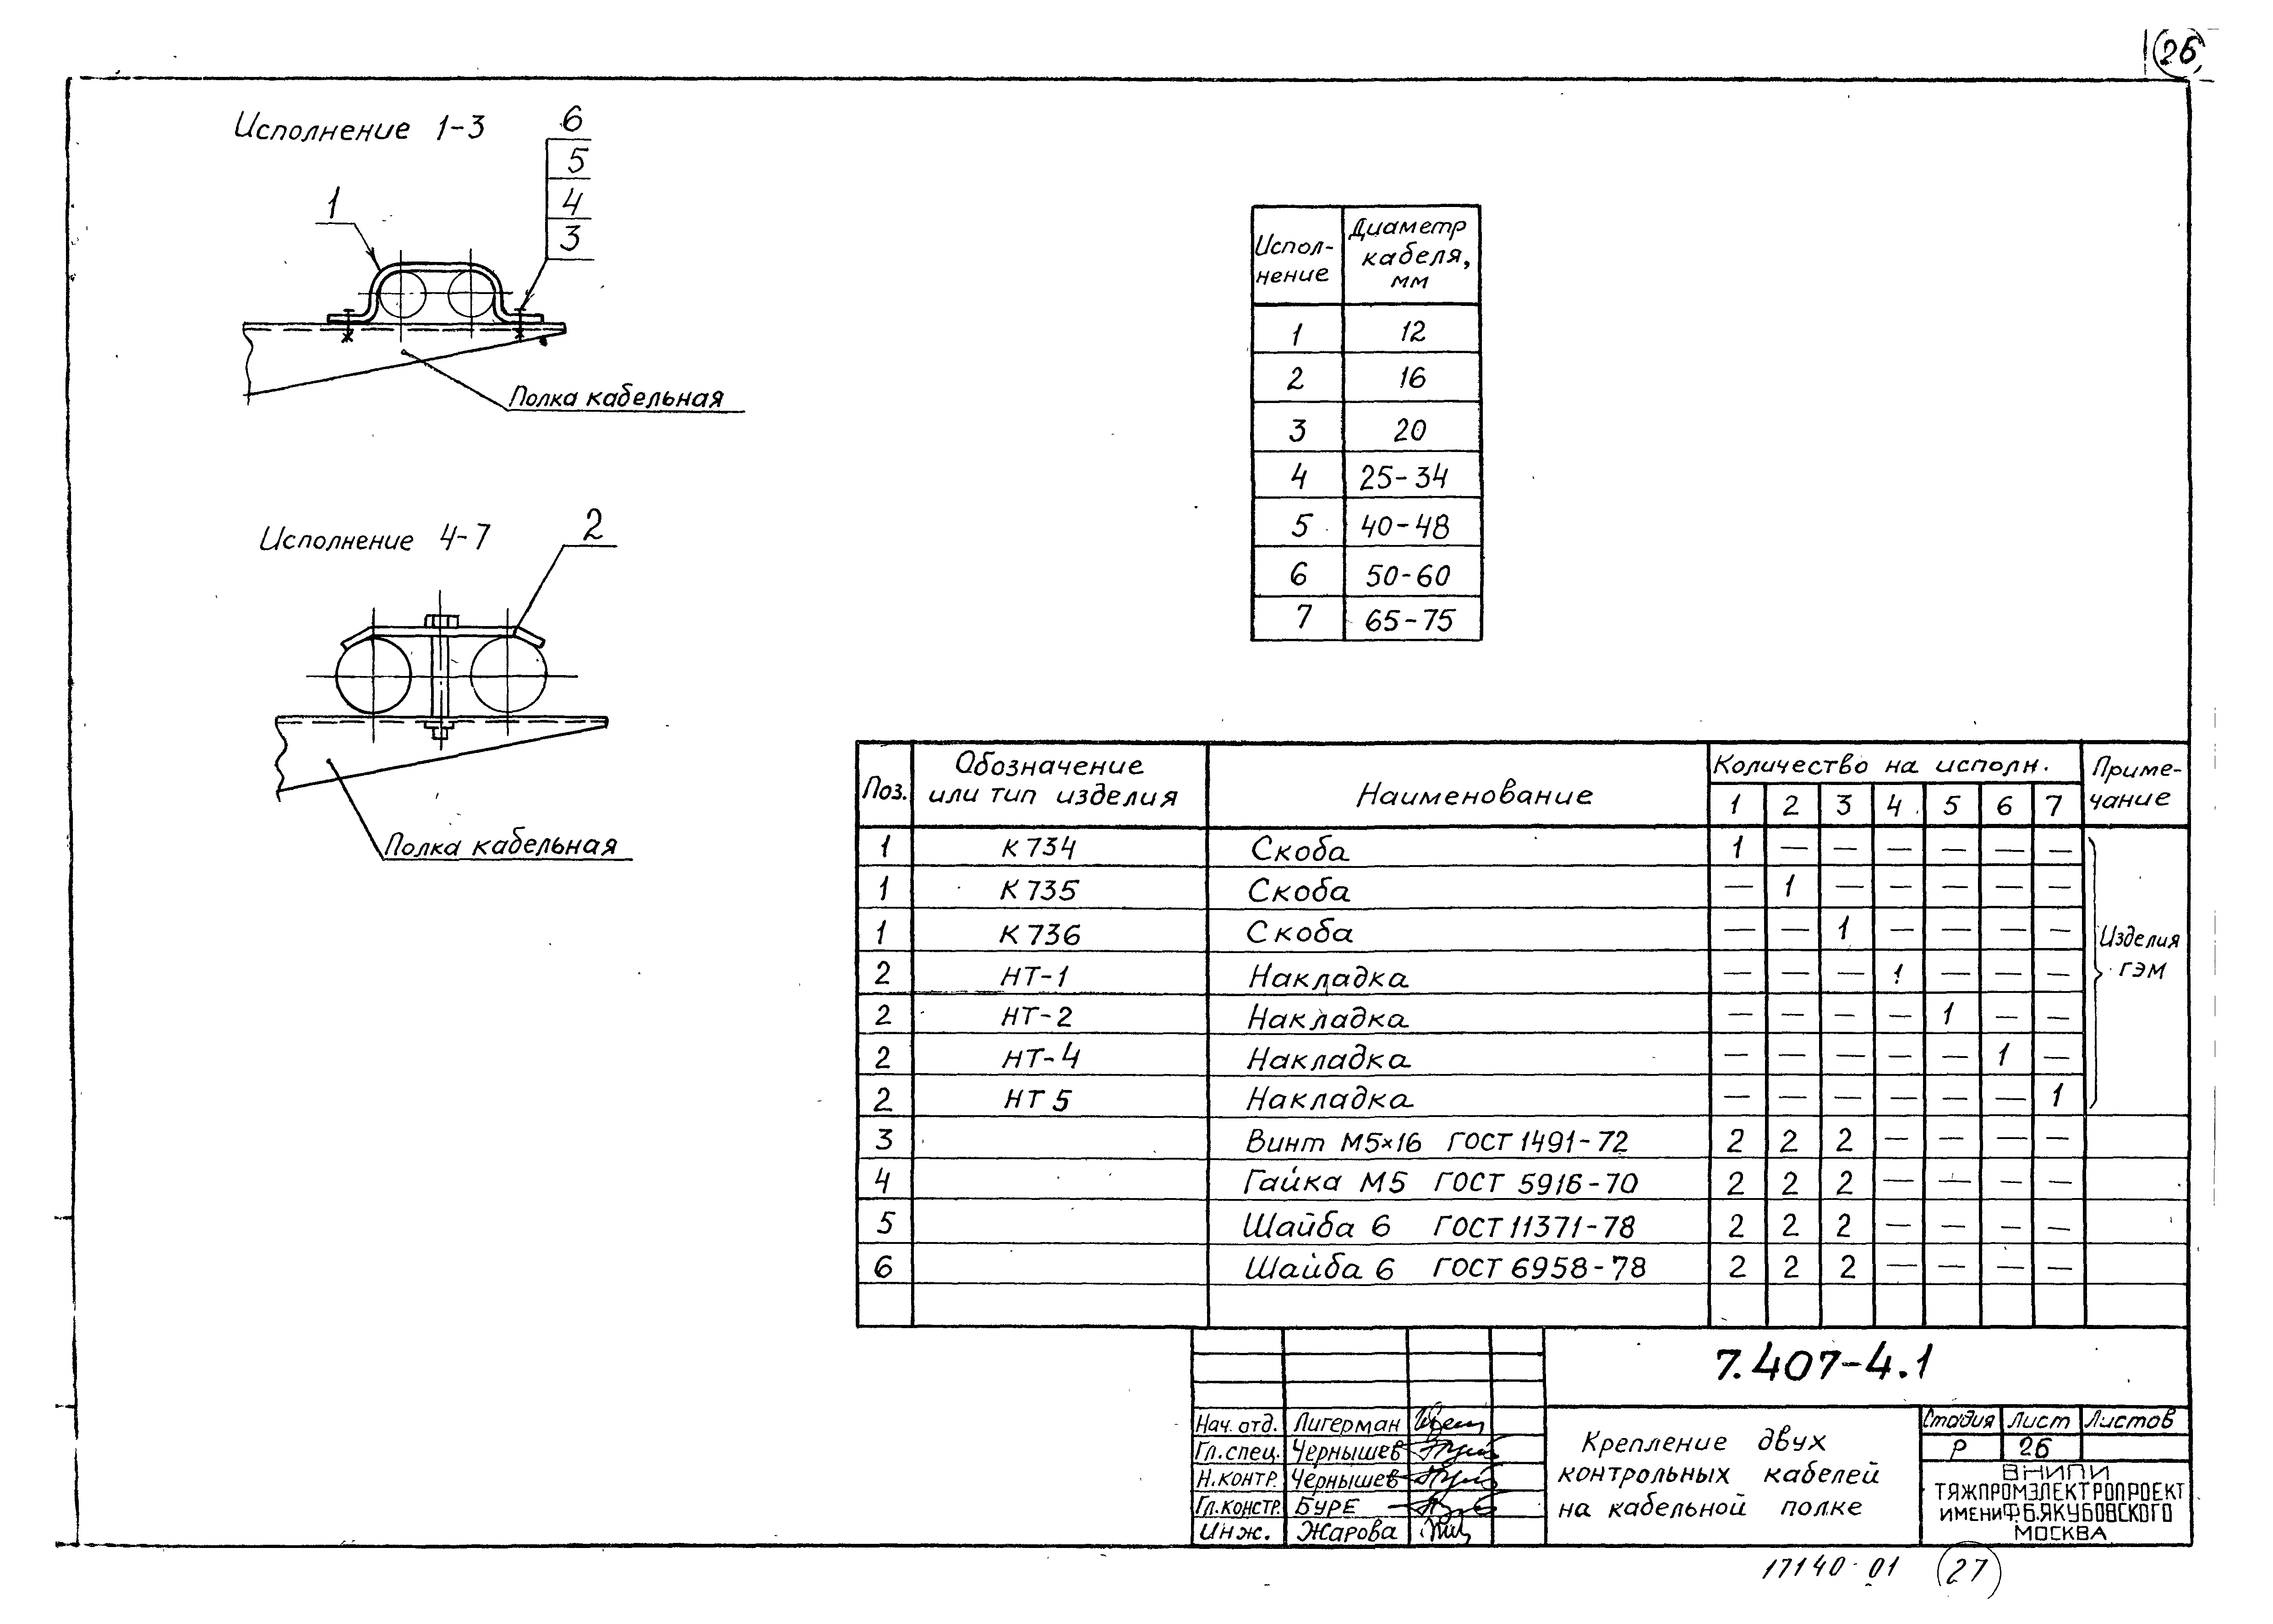 26
Исполнение 1-3
6
5
4
3
1
Полка кабельная
Исполнение 4-7
2
Полка кабельная
Испол-
нение
Диаметр
кабеля,
мм
1 12
2 16
3 20
4 25-34
5 40-48
6 50-60
7 65-75
Поз. Обозначение или тип изделия Наименование Количество на исполн. Приме-
чание
1 2 3 4 5 6 7
1 К734 Скоба 1 — — — — — —
1 К735 Скоба — 1 — — — — —
1 К736 Скоба — — 1 — — — —
2 НТ-1 Накладка — — — 1 — — —
2 НТ-2 Накладка — — — — 1 — —
2 НТ-4 Накладка — — — — — 1 —
2 НТ 5 Накладка — — — — — — 1
Изделия
ГЭМ
3 Винт М5×16 ГОСТ 1491-72 2 2 2 — — — —
4 Гайка М5 ГОСТ 5916-70 2 2 2 — — — —
5 Шайба 6 ГОСТ 11371-78 2 2 2 — — — —
6 Шайба 6 ГОСТ 6958-78 2 2 2 — — — —
7.407-4.1
Нач. отд. Лигерман
Гл.спец. Чернышев
Н.контр. Чернышев
Гл.констр. Буре
Инж. Жарова
Крепление двух
контрольных кабелей
на кабельной полке
Стадия Лист Листов
Р 26
ВНИПИ
ТЯЖПРОМЭЛЕКТРОПРОЕКТ
ИМЕНИ Ф.Б.ЯКУБОВСКОГО
МОСКВА
17140-01 27